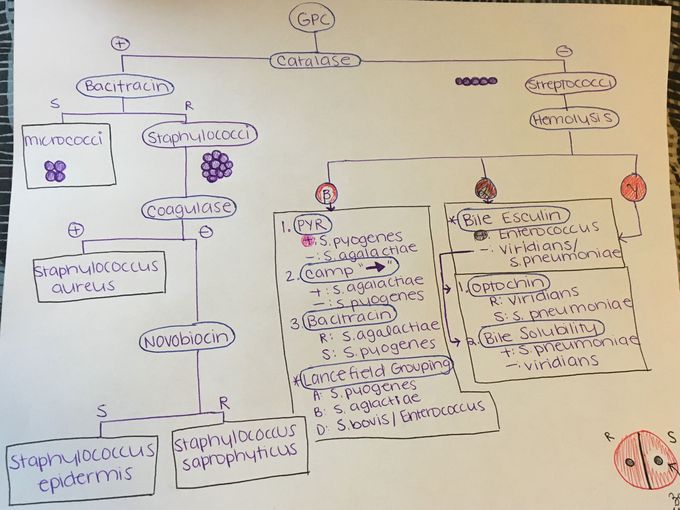 GPC
Catalase
+
−
Bacitracin
S
R
micrococci
Staphylococci
Coagulase
+
−
Staphylococcus
aureus
Novobiocin
S
R
Staphylococcus
epidermis
Staphylococcus
saprophyticus
Streptococci
Hemolysis
β
α
γ
1. PYR
+: S.pyogenes
−: S.agalactiae
2. Camp "→"
+: S.agalactiae
−: S.pyogenes
3. Bacitracin
R: S.agalactiae
S: S.pyogenes
*Lancefield Grouping
A: S.pyogenes
B: S.aglactiae
D: S.bovis/Enterococcus
*Bile Esculin
Enterococcus
−: viridians/
S.pneumoniae
1. Optochin
R: viridians
S: S. pneumoniae
2. Bile Solubility
+: S.pneumoniae
−: viridians
R
S